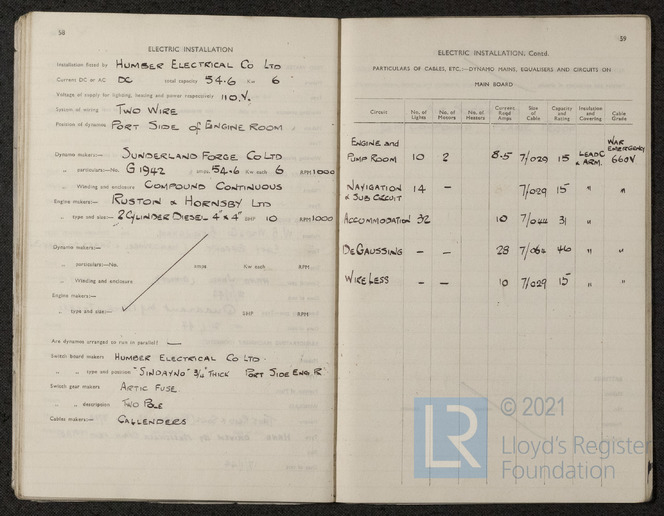 58
ELECTRIC INSTALLATION
Installation fitted by HUMBER ELECTRICAL CO LTD
Current DC or AC DC total capacity 54.6 Kw 6
Voltage of supply for lighting, heating and power respectively 110.V.
System of wiring TWO WIRE
Position of dynamos PORT SIDE of ENGINE ROOM
Dynamo makers:— SUNDERLAND FORGE CO LTD
„ particulars:—No. G 1942 amps. 54.6 Kw each 6 RPM 1000
„ Winding and enclosure COMPOUND CONTINUOUS
Engine makers:— RUSTON & HORNSBY LTD
„ type and size:— 2 CYLINDER DIESEL 4" x 4" BHP 10 RPM 1000
Dynamo makers:—
„ particulars:—No. amps Kw each RPM
„ Winding and enclosure
Engine makers:—
„ type and size:— BHP RPM
Are dynamos arranged to run in parallel? —
Switch board makers HUMBER ELECTRICAL CO LTD.
„ „ type and position "SINDAYNO" 3/4" THICK PORT SIDE ENG. R
Switch gear makers ARTIC FUSE.
„ „ description TWO POLE
Cables makers:— CALLENDERS
59
ELECTRIC INSTALLATION, Contd.
PARTICULARS OF CABLES, ETC.:—DYNAMO MAINS, EQUALISERS AND CIRCUITS ON
MAIN BOARD
Circuit No. of Lights No. of Motors No. of Heaters Current Road Amps Size of Cable Capacity and Rating Insulation and Covering Cable Grade
ENGINE and PUMP ROOM 10 2 8.5 7/029 15 LEAD C & ARM. WAR EMERGENCY 660V
NAVIGATION & SUB CIRCUIT 14 — 7/029 15 „ „
ACCOMMODATION 32 10 7/044 31 „ „
DEGAUSSING — — 28 7/064 46 „ „
WIRELESS — — 10 7/029 15 „ „
LR
© 2021
Lloyd's Register
Foundation